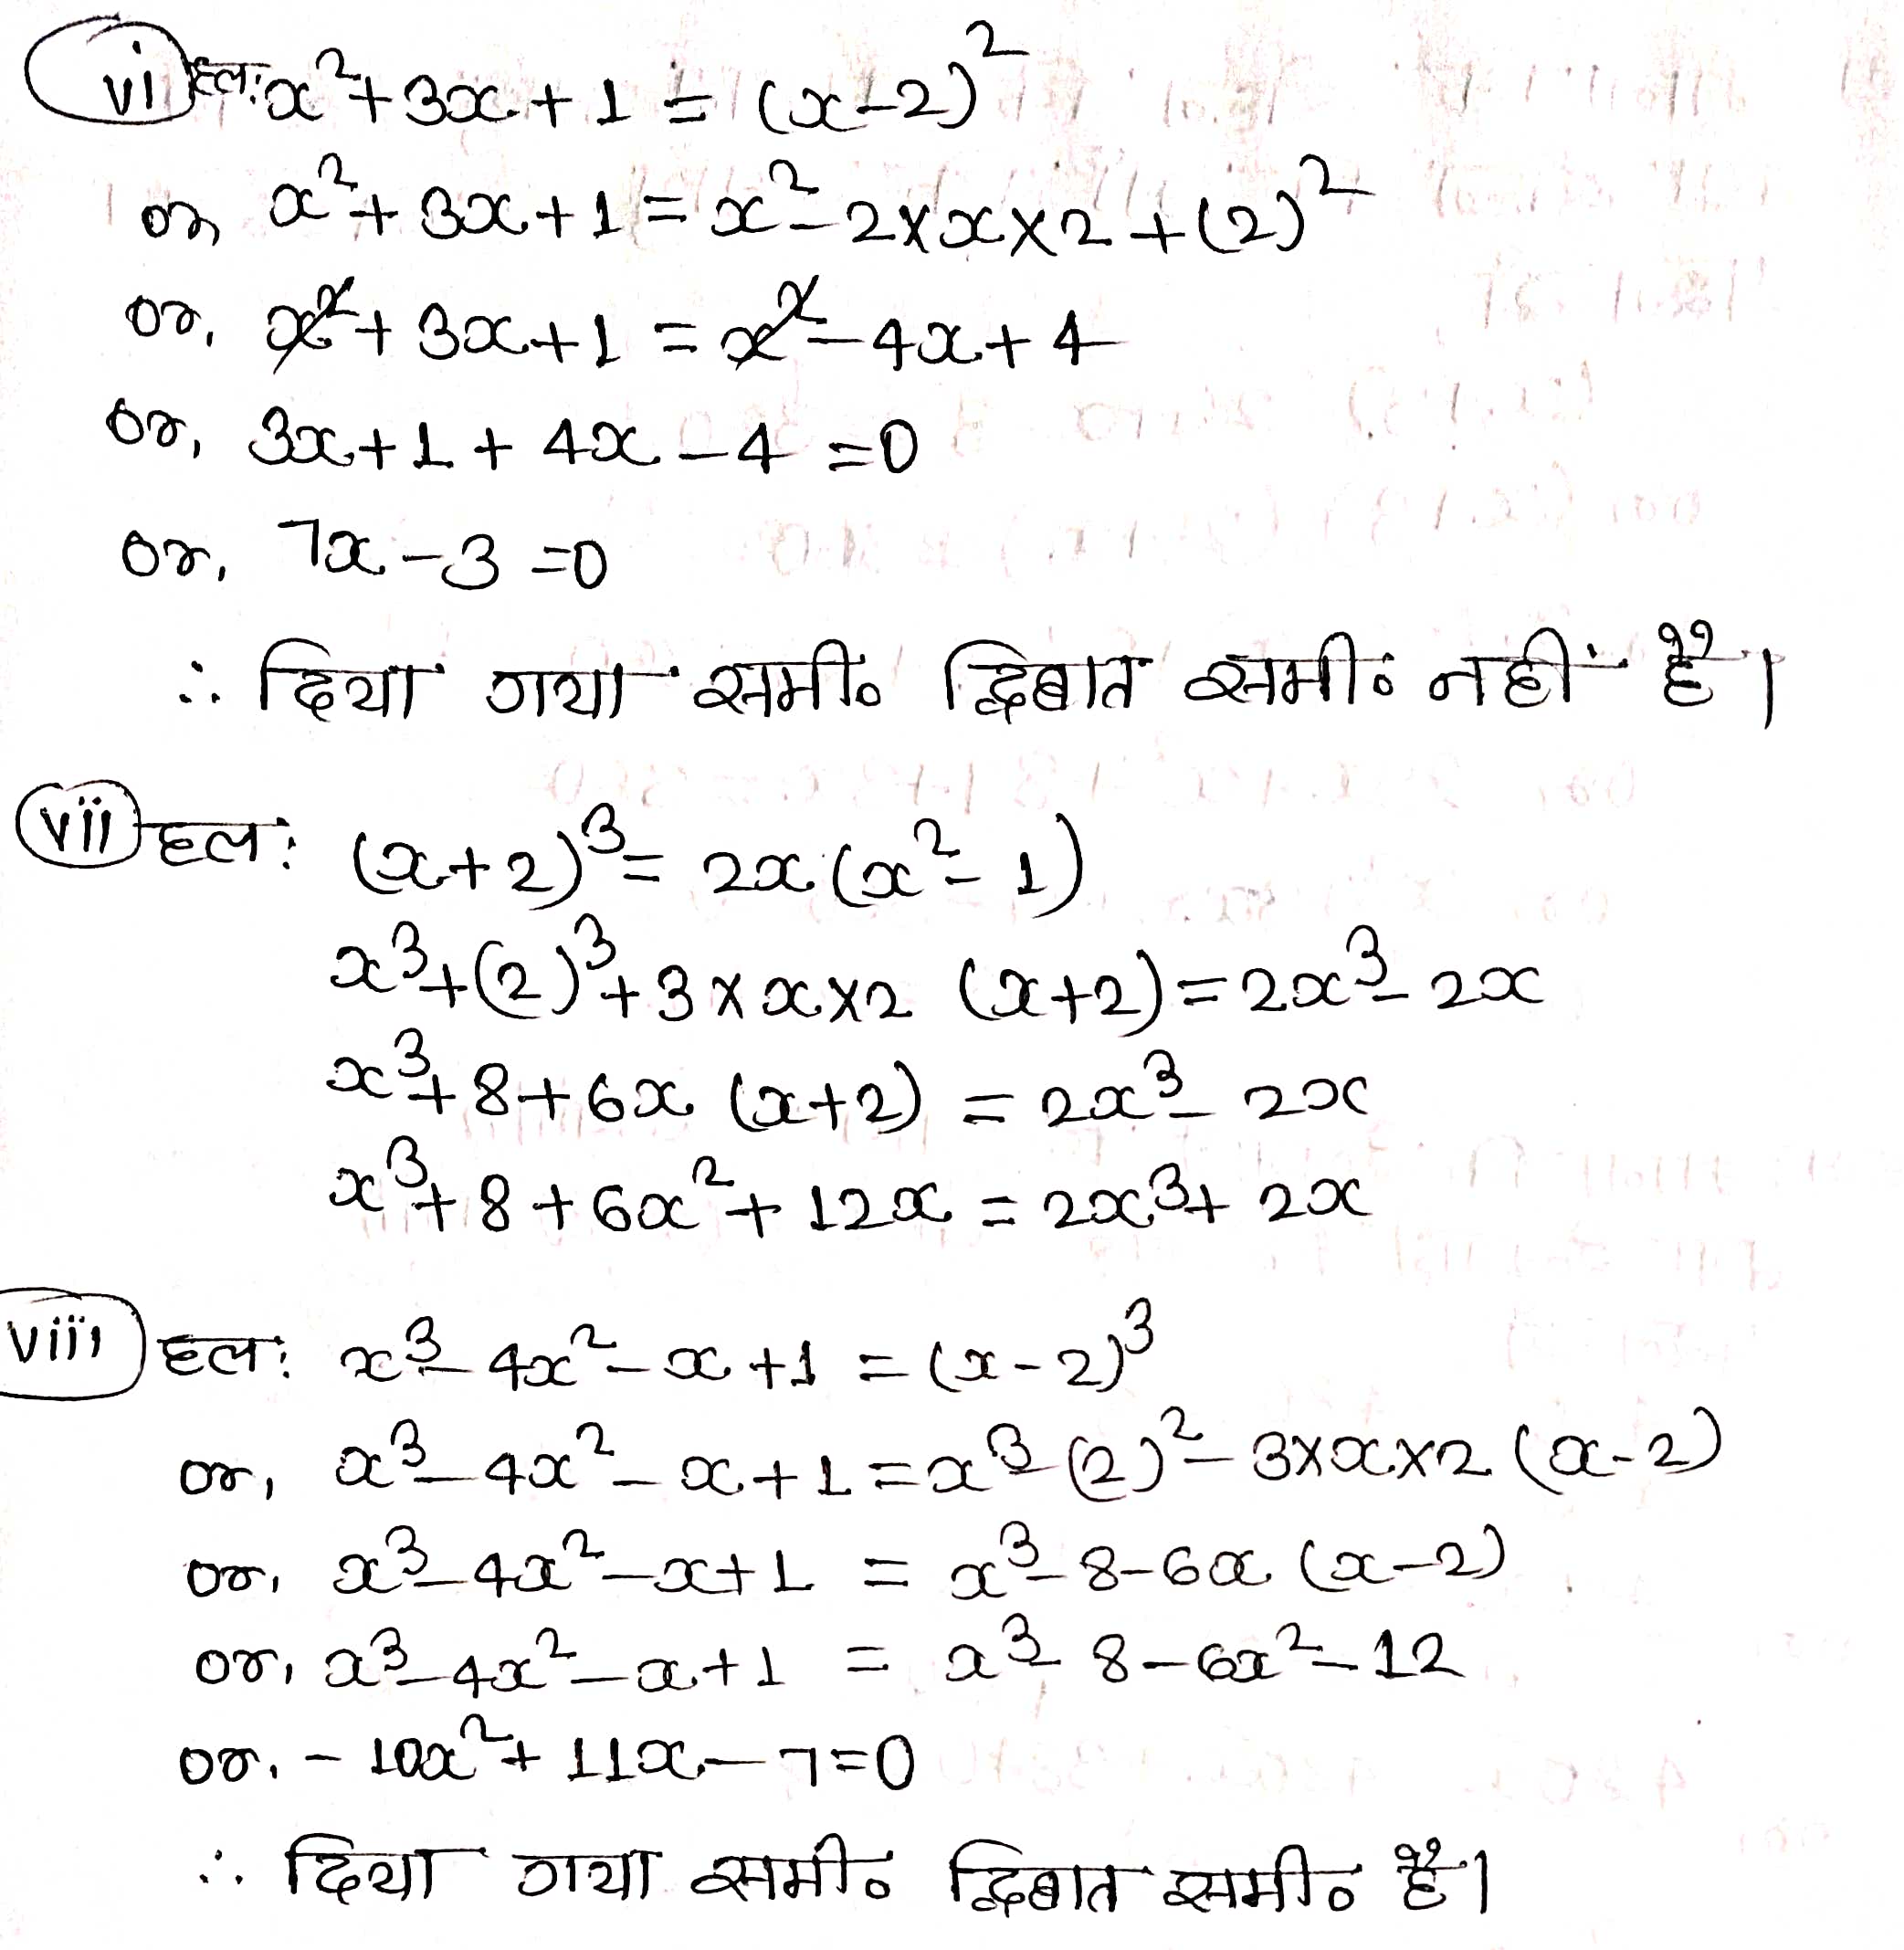 vi) हल: x² + 3x + 1 = (x-2)²
or x² + 3x + 1 = x² - 2×x×2 + (2)²
or, x² + 3x + 1 = x² - 4x + 4
or, 3x + 1 + 4x - 4 = 0
or, 7x - 3 = 0
∴ दिया गया समी॰ द्विघात समी॰ नहीं है।
vii) हल: (x+2)³ = 2x (x² - 1)
x³ + (2)³ + 3×x×2 (x+2) = 2x³ - 2x
x³ + 8 + 6x (x+2) = 2x³ - 2x
x³ + 8 + 6x² + 12x = 2x³ + 2x
viii) हल: x³ - 4x² - x + 1 = (x-2)³
or, x³ - 4x² - x + 1 = x³ - (2)² - 3×x×2 (x-2)
or, x³ - 4x² - x + 1 = x³ - 8 - 6x (x-2)
or, x³ - 4x² - x + 1 = x³ - 8 - 6x² - 12
or, - 10x² + 11x - 7 = 0
∴ दिया गया समी॰ द्विघात समी॰ है।